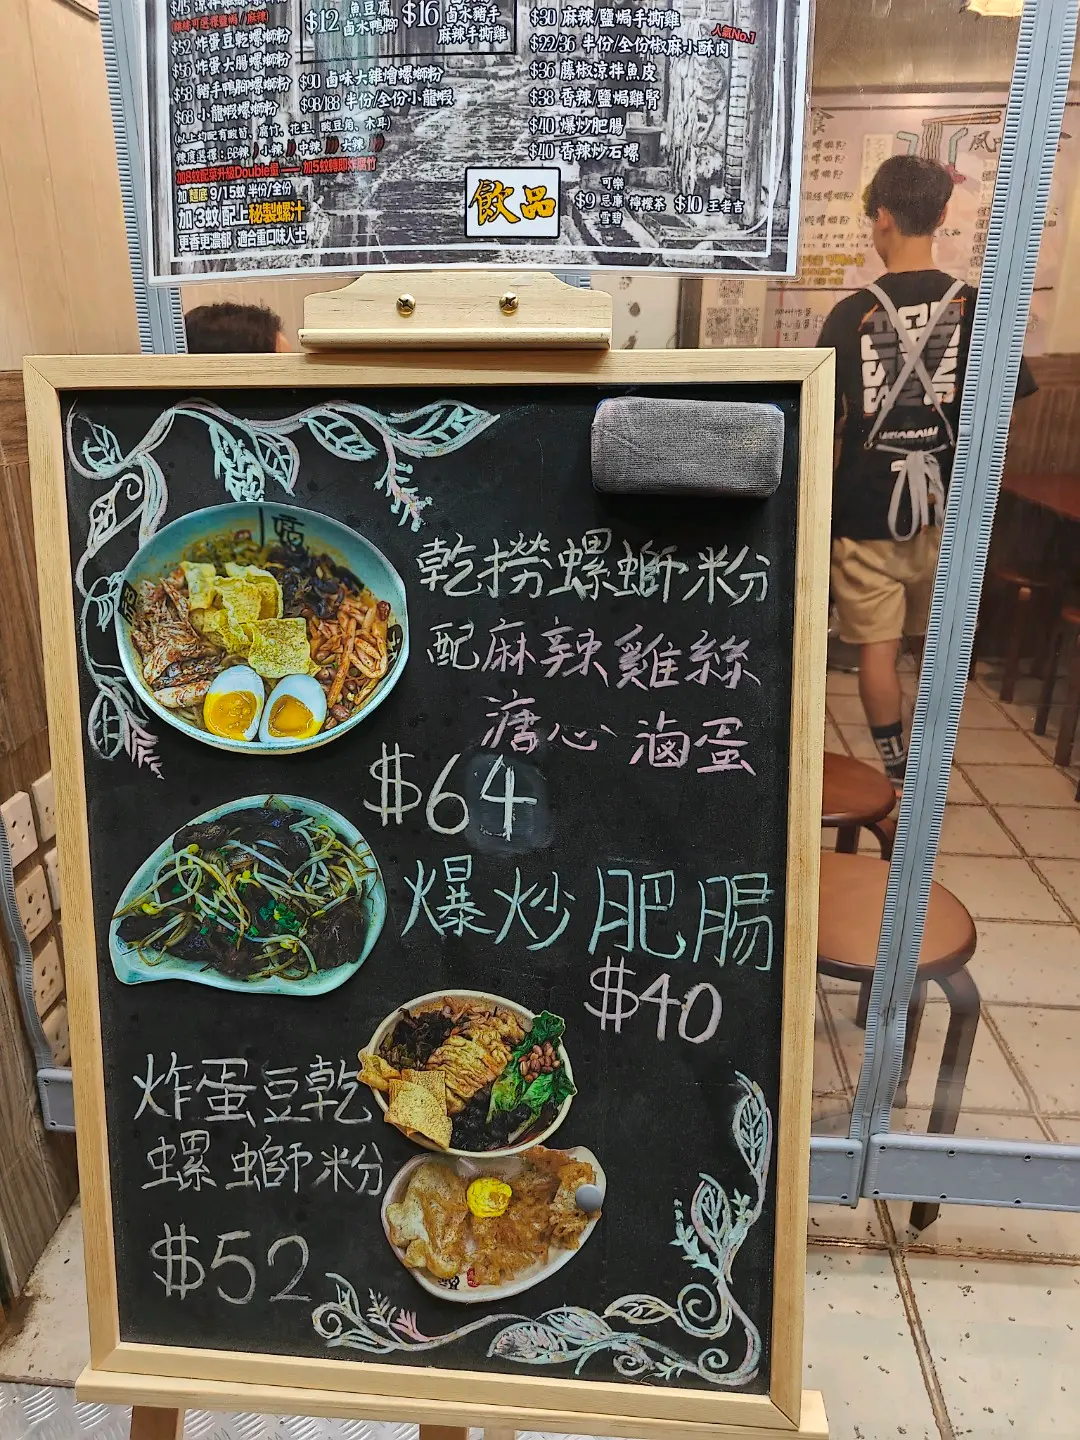 (辣絲可選擇鹽焗/麻辣)
$52 炸蛋豆乾螺螄粉
$56 炸蛋大腸螺螄粉
$58 豬手鴨腳螺螄粉
$68 小龍蝦螺螄粉
(以上均配有酸筍、腐竹、花生、酸豆角、木耳)
辣度選擇:BB辣 小辣 中辣 大辣
加8蚊配菜升級Double量 —— 加5蚊轉即炸腐竹
加 麵底 9/15蚊 半份/全份
加 3蚊 配上秘製螺汁
更香更濃郁 適合重口味人士
$12 魚豆腐
鹵水鴨腳
$16 鹵水豬手
麻辣手撕雞
$90 鹵味大雜燴螺螄粉
$98/188 半份/全份小龍蝦
$30 麻辣/鹽焗手撕雞
人氣No.1
$22/36 半份/全份椒麻小酥肉
$36 藤椒涼拌魚皮
$38 香辣/鹽焗雞腎
$40 爆炒肥腸
$40 香辣炒石螺
飲品
$9 可樂 忌廉 雪碧 檸檬茶 $10 王老吉
乾撈螺螄粉
配麻辣雞絲
溏心 滷蛋
$64
爆炒肥腸
$40
炸蛋豆乾
螺螄粉
$52